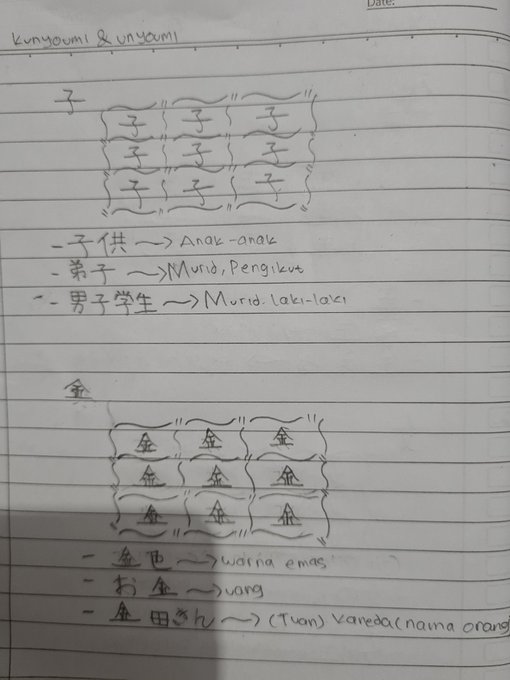 Date:
Kunyoumi & unyoumi
子
子 子 子
子 子 子
子 子 子
- 子供 → Anak-anak
- 弟子 → Murid, Pengikut
- 男子学生 → Murid laki-laki
金
金 金 金
金 金 金
金 金 金
- 金色 → warna emas
- お金 → uang
- 金田さん → (Tuan) Kaneda (nama orang